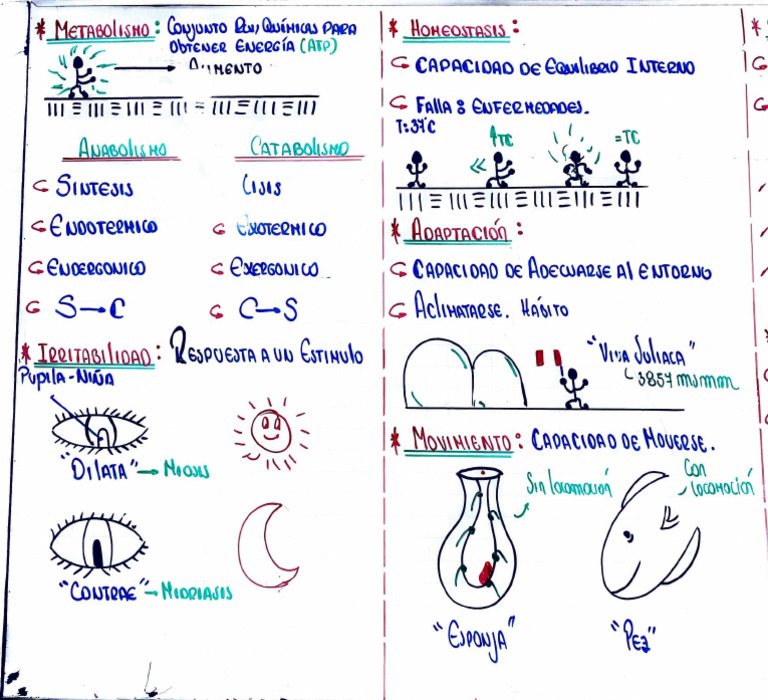 * METABOLISMO: CONJUNTO RXN QUÍMICAS PARA
OBTENER ENERGÍA (ATP)
ALIMENTO
ANABOLISMO
SINTESIS
ENDOTERMICO
ENDERGONICO
S→C
CATABOLISMO
LISIS
EXOTERMICO
EXERGONICO
C→S
* IRRITABILIDAD: RESPUESTA A UN ESTIMULO
PUPILA-NIÑA
"DILATA" → MIOSIS
"CONTRAE" → MIDRIASIS
* HOMEOSTASIS:
CAPACIDAD DE EQUILIBRIO INTERNO
FALLA: ENFERMEDADES.
T:37°C
↑TC
=TC
* ADAPTACIÓN:
CAPACIDAD DE ADECUARSE AL ENTORNO
ACLIMATARSE. HÁBITO
"VIVA JULIACA"
3857 msnmm
* MOVIMIENTO: CAPACIDAD DE MOVERSE.
Sin locomoción
Con locomoción
"ESPONJA"
"PEZ"